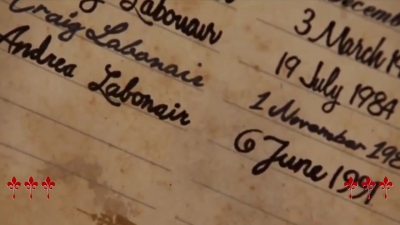 Labonair 3 March 19
Craig Labonair 19 July 1984
Andrea Labonair 1 November 198
6 June 1991